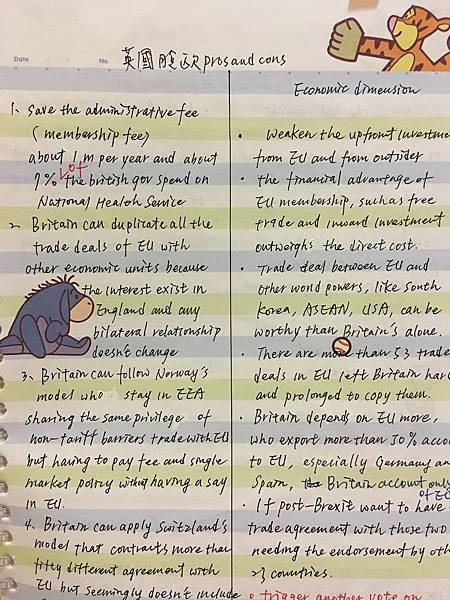 Date / / No.
英國脫歐 pros and cons
1、 save the administrative fee
(membership fee)
about 1 m per year and about
7% of the british gov spend on
National Health Service
2、 Britain can duplicate all the
trade deals of EU with
other economic units because
the interest exist in
England and any
bilateral relationship
doesn't change
3、 Britain can follow Norway's
model who stay in EEA
sharing the same privilege of
non-tariff barriers trade with EU
but having to pay fee and single
market policy without having a say
in EU.
4. Britain can apply Switzland's
model that contracts more than
fifty different agreement with
EU but seemingly doesn't include
Economic dimension
• Weaken the upfront investme
from EU and from outsider
• the financial advantage of
EU membership, such as free
trade and inward investment
outweighs the direct cost.
• Trade deal between EU and
other world powers, like South
Korea, ASEAN, USA, can be
worthy than Britain's alone.
• There are more than 53 trade
deals in EU left Britain hard
and prolonged to copy them.
• Britain depends on EU more,
who export more than 50% acco
to EU, especially Germany an
Spain, Britain account only
of EU
• If post-Brexit want to have
trade agreement with those two
needing the endorsement by oth
23 countries.
• trigger another vote on